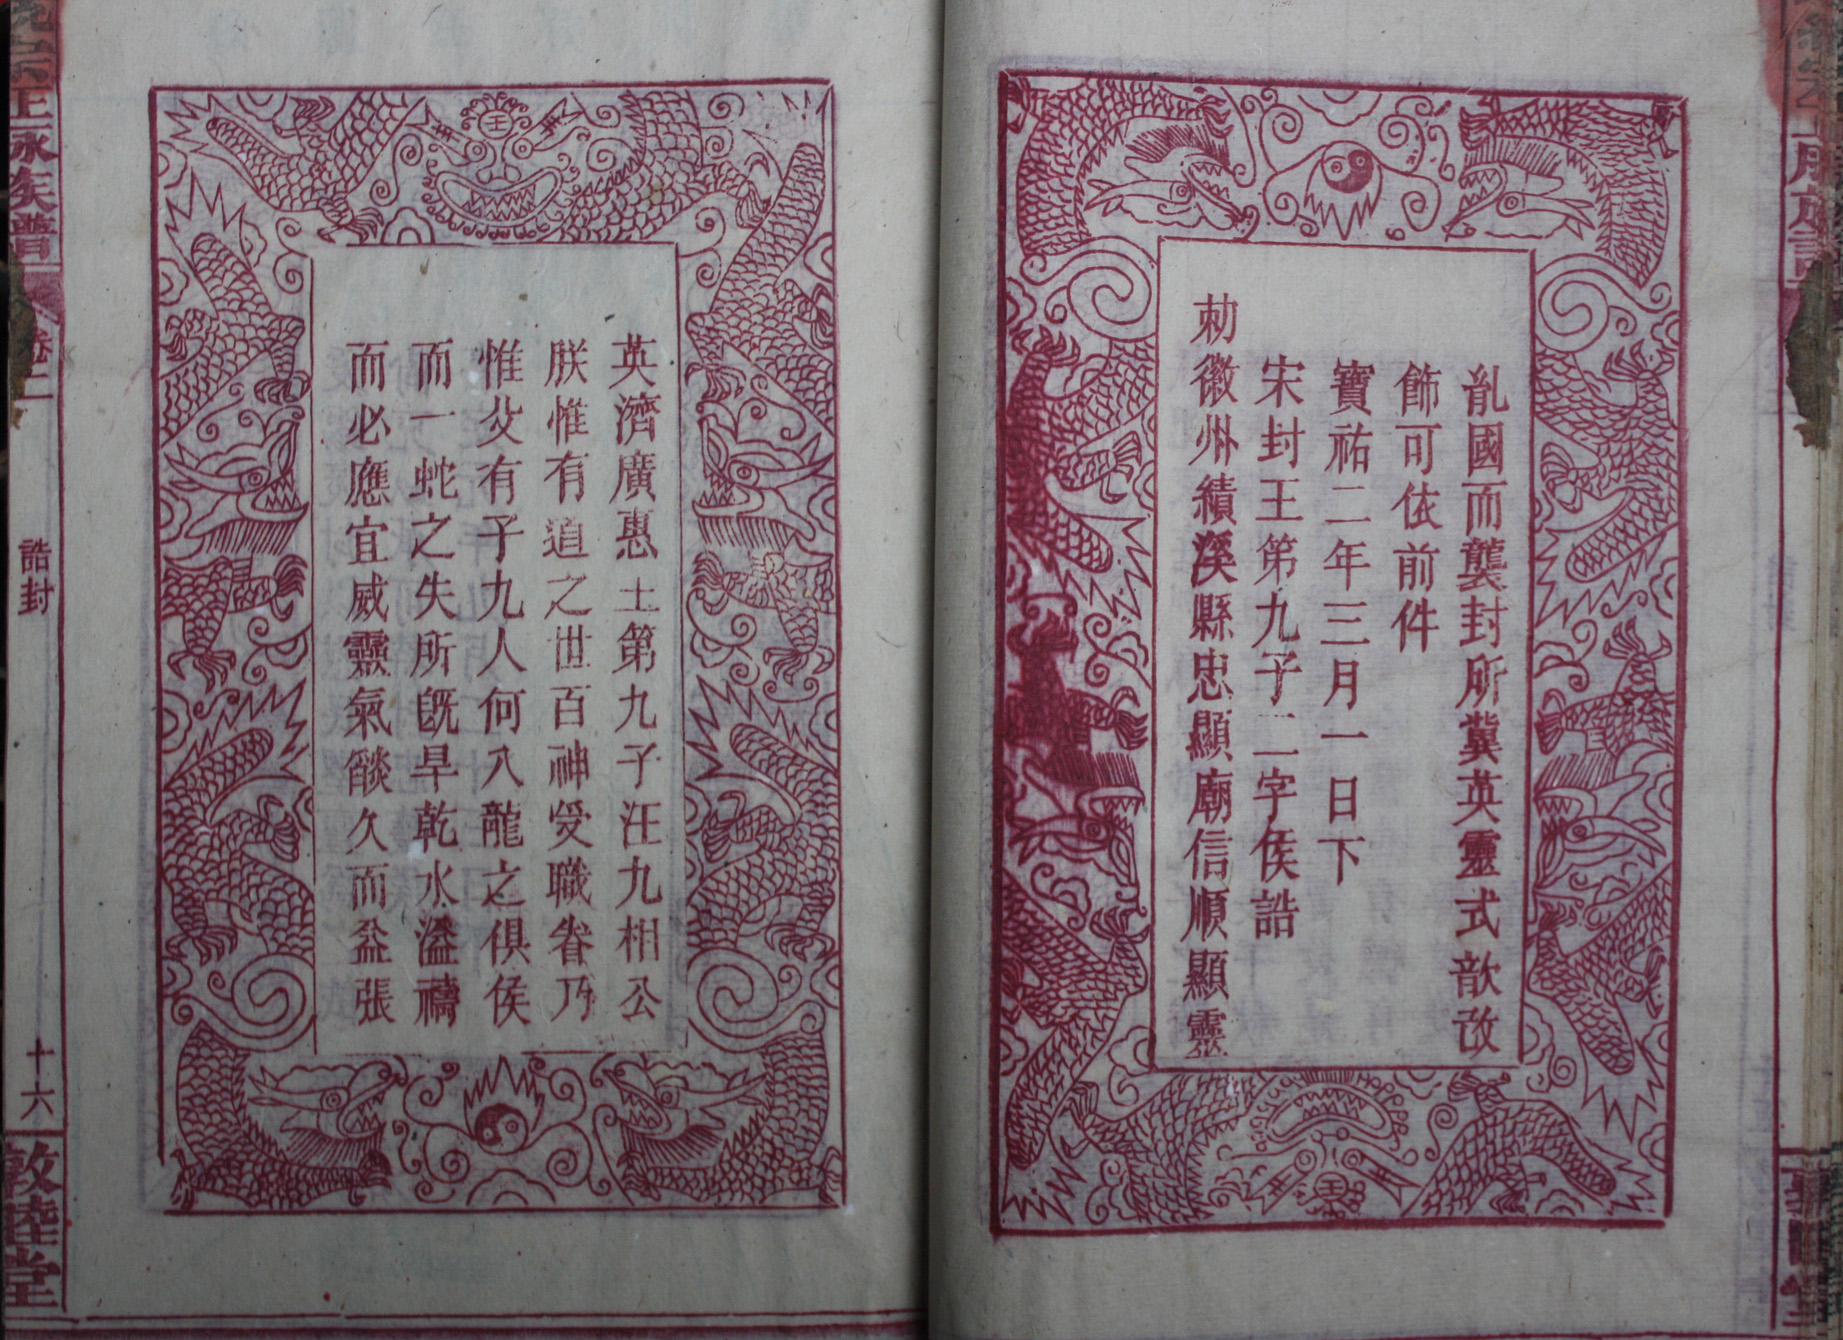 亂國而襲封所冀英靈式歆改
飾可依前件
寶祐二年三月一日下
宋封王第九子二字侯誥
勑徽州績溪縣忠顯廟信順顯靈
英濟廣惠王第九子汪九相公
朕惟有道之世百神受職眷乃
惟父有子九人何八龍之俱侯
而一蛇之失所旣旱乾水溢禱
而必應宜威靈氣燄久而益張
誥封
十六
敦睦堂